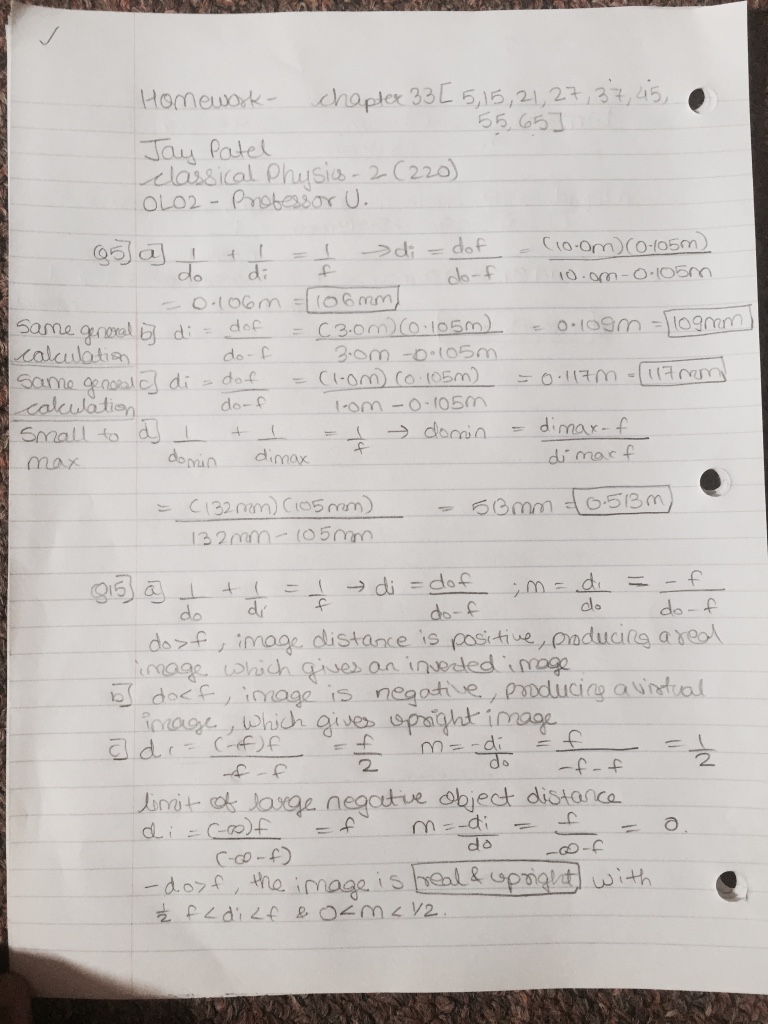 ✓
Homework - chapter 33 [ 5,15,21,27,37,45,
55,65]
Jay Patel
Classical Physics - 2 (220)
OL02 - Professor U.
Q5] a] 1/do + 1/di = 1/f → di = dof/do-f = (10.0m)(0.105m)/10.0m-0.105m
= 0.106m = 106mm
Same general calculation b] di = dof/do-f = (3.0m)(0.105m)/3.0m-0.105m = 0.109m = 109mm
Same general calculation c] di = dof/do-f = (1.0m)(0.105m)/1.0m-0.105m = 0.117m = 117mm
Small to max d] 1/domin + 1/dimax = 1/f → domin = dimax-f/dimaxf
= (132mm)(105mm)/132mm-105mm = 513mm = 0.513m
Q15] a] 1/do + 1/di = 1/f → di = dof/do-f ; m = di/do = -f/do-f
do>f, image distance is positive, producing a real
image which gives an inverted image
b] do<f, image is negative, producing a virtual
image, which gives upright image
c] di = (-f)f/-f-f = f/2 m = -di/do = f/-f-f = 1/2
limit of large negative object distance
di = (-∞)f/(-∞-f) = f m = -di/do = f/-∞-f = 0.
-do>f, the image is real & upright with
1/2 f<di<f & 0<m<1/2.